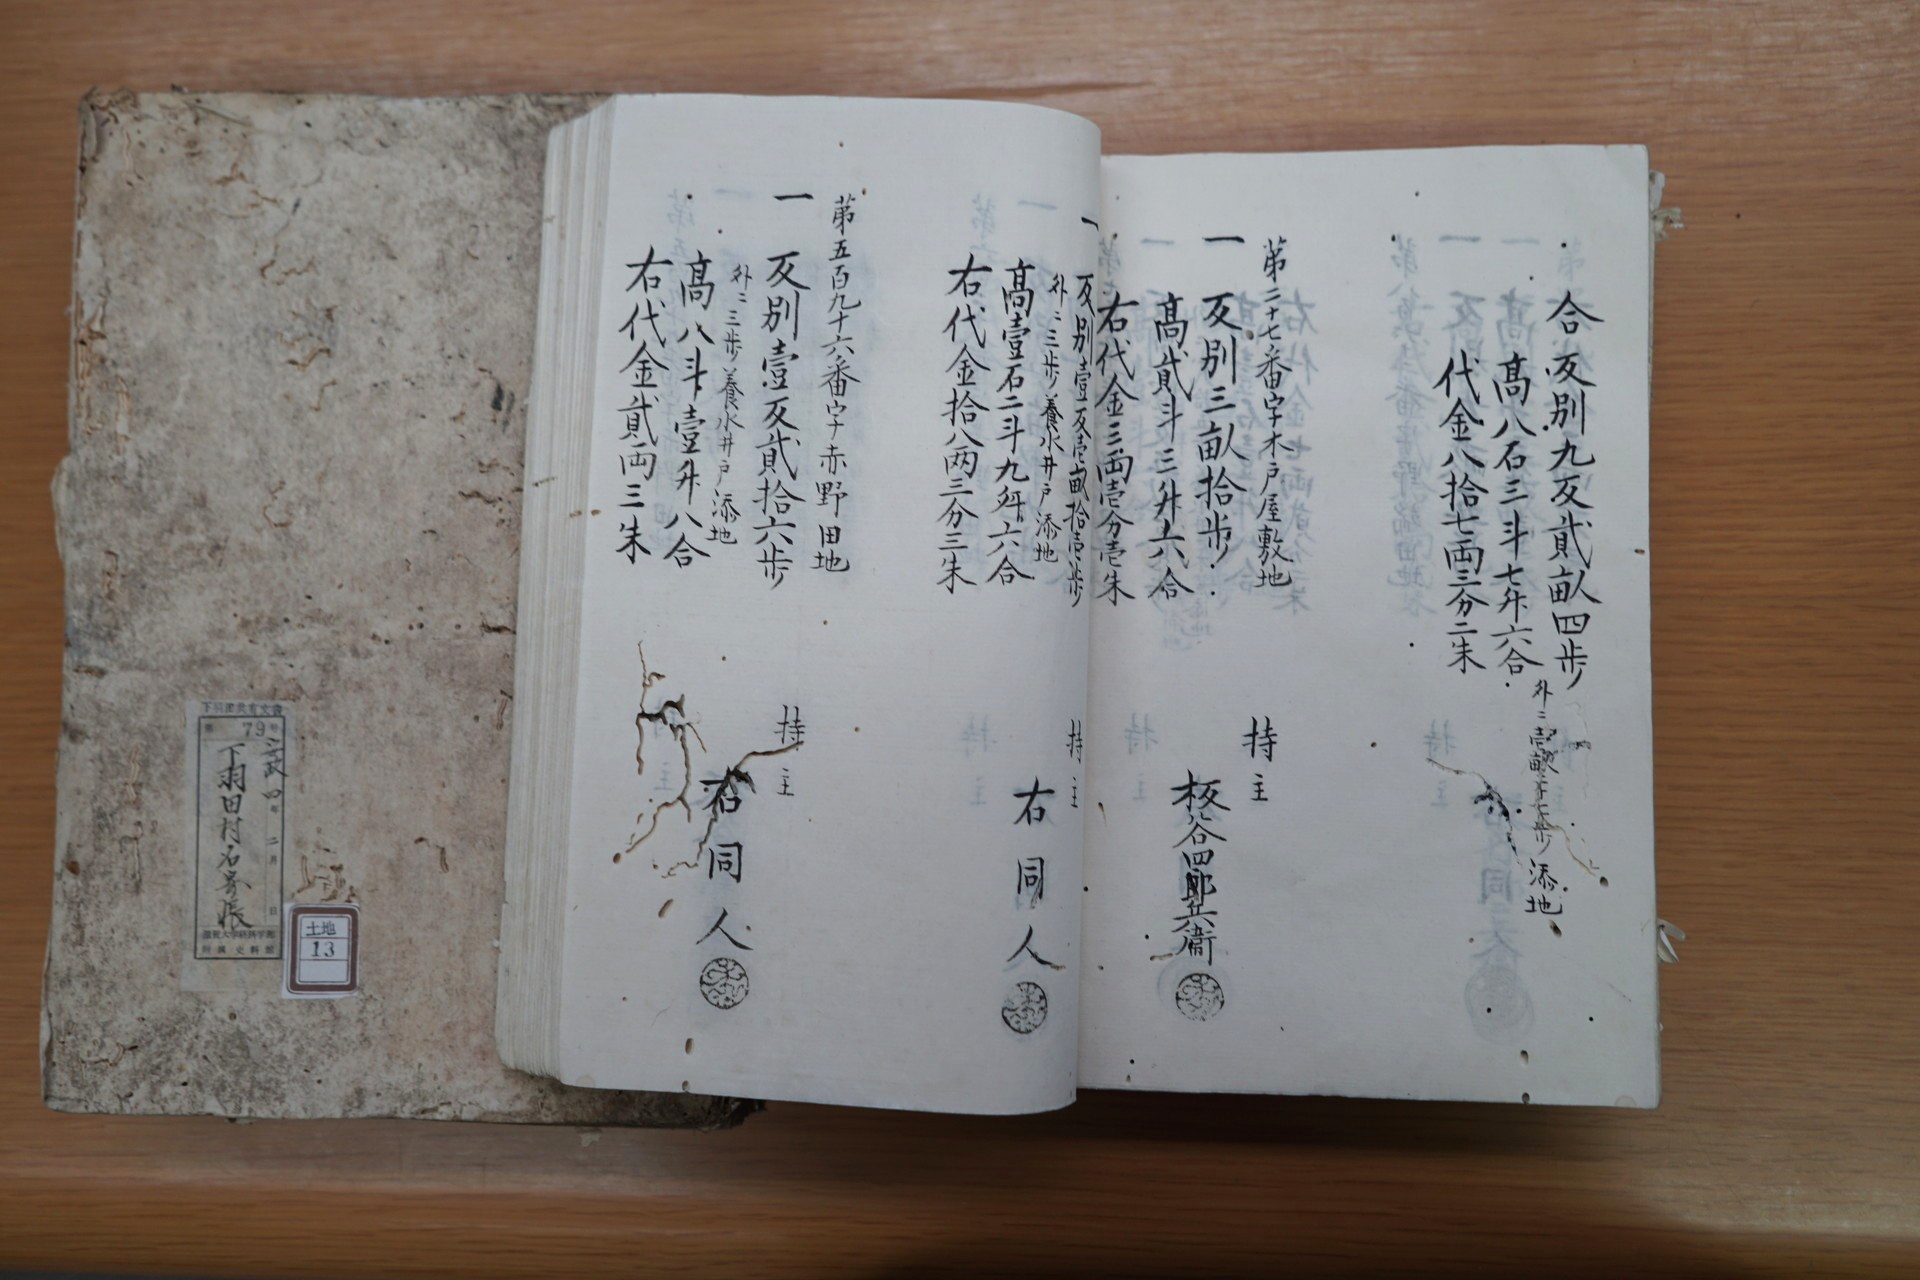 合反別九反貳畝四歩
外ニ壱畝
歩
添地
高八石三斗七升六合
代金八拾七両三分二朱
第二十七番字木戸屋敷地
一反別三畝拾歩
持主
高貳斗三升六合
板谷四郎兵衛
右代金三両壱分壱朱
一反別壹反壱畝拾壱歩
持主
外ニ三歩養水井戸添地
高壹石二斗九升六合
右同人
右代金拾八両三分三朱
第五百九十六番字赤野田地
一反別壹反貳拾六歩
持主
外ニ三歩養水井戸添地
高八斗壹升八合
右同人
右代金貳両三朱
下羽田共有文書
第79号
年二月日
下羽田村名寄帳
滋賀大学経済学部
附属史料館
土地
13